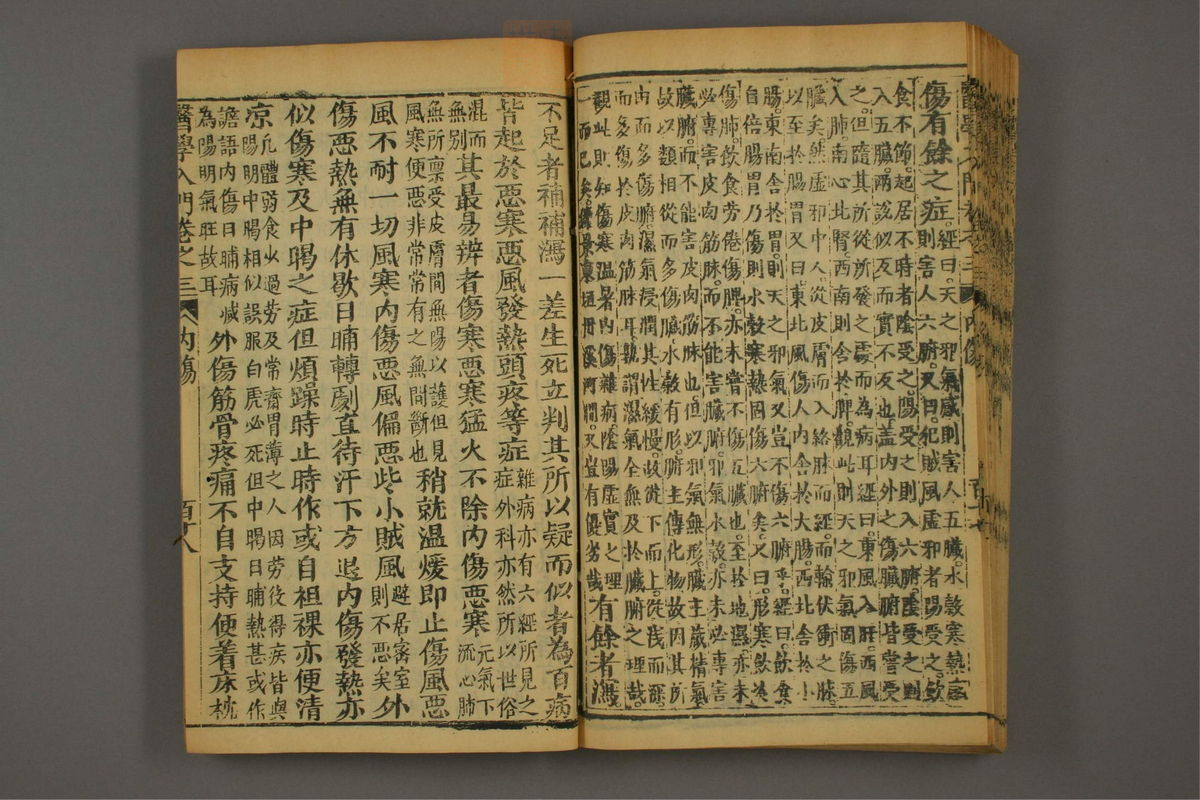 傷有餘之症
經曰天之邪氣感則害人五臟水穀寒熱感
則害人六腑又曰犯賊風虛邪者陽受之飲
食不節起居不時者陰受之陽受之則入六腑陰受之則
入五臟兩說似反而實不反也蓋內外之傷臟腑皆嘗受
之但隨其所從所發之處而為病耳經曰東風入肝西風
入肺南心北腎西南則舍於脾觀此則天之邪氣固傷五
臟矣然虛邪中人從皮膚而入絡脉而經而輸伏衝之脉
以至於腸胃又曰東北風傷人內舍於大腸西北舍於小
腸東南舍於胃則天之邪氣又豈不傷六腑乎經曰飲食
自倍腸胃乃傷則水穀寒熱固傷六腑矣又曰形寒飲冷
傷肺飲食勞倦傷脾亦未嘗不傷五臟也至於地濕亦未
必專害皮肉筋脉而不能害臟腑邪氣水穀亦未必專害
臟腑而不能害皮肉筋脉也但以邪氣無形臟主藏精氣
故以類相從而多傷臟水穀有形腑主傳化物故因其所
由而多傷腑濕氣浸潤其性緩慢故從下而上從淺而深
而多傷於皮肉筋脉耳孰謂濕氣全無及於臟腑之理哉
觀此則知傷寒溫暑內傷雜病陰陽虛實之理
一而已矣東垣丹溪河間又豈有優劣哉
有餘者瀉
不足者補補瀉一差生死立判其所以疑而似者為百病
皆起於惡寒惡風發熱頭疼等症
雜病亦有六經所見之
症外科亦然所以世俗
混而
無別
其最易辨者傷寒惡寒猛火不除內傷惡寒
元氣下
流心肺
無所禀受皮膚間無陽以護但見
風寒便惡非常常有之無間斷也
稍就溫煖即止傷風惡
風不耐一切風寒內傷惡風偏惡些小賊風
避居密室
則不惡矣
外
傷惡熱無有休歇日晡轉劇直待汗下方退內傷發熱亦
似傷寒及中暍之症但煩躁時止時作或自袒裸亦便清
凉
凡體弱食少過勞及常齋胃薄之人因勞役得疾皆與
陽明中暍相似誤服白虎必死但中暍日晡熱甚或作
譫語內傷日晡病減
為陽明氣旺故耳
外傷筋骨疼痛不自支持便着床枕
醫學入門卷之三
內傷
百十八